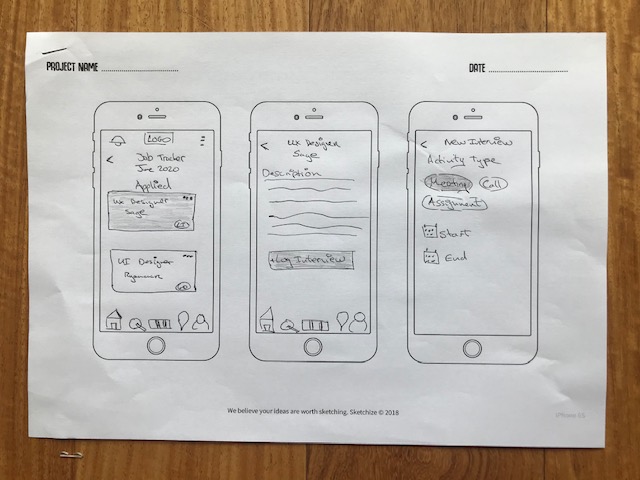 PROJECT NAME
DATE
LOGO
Job Tracker
June 2020
Applied
UX Designer
Sage
UI Designer
UX Designer
Sage
Description
+Log Interview
New Interview
Activity Type
Meeting Call
Assignment
Start
End
We believe your ideas are worth sketching. Sketchize © 2018